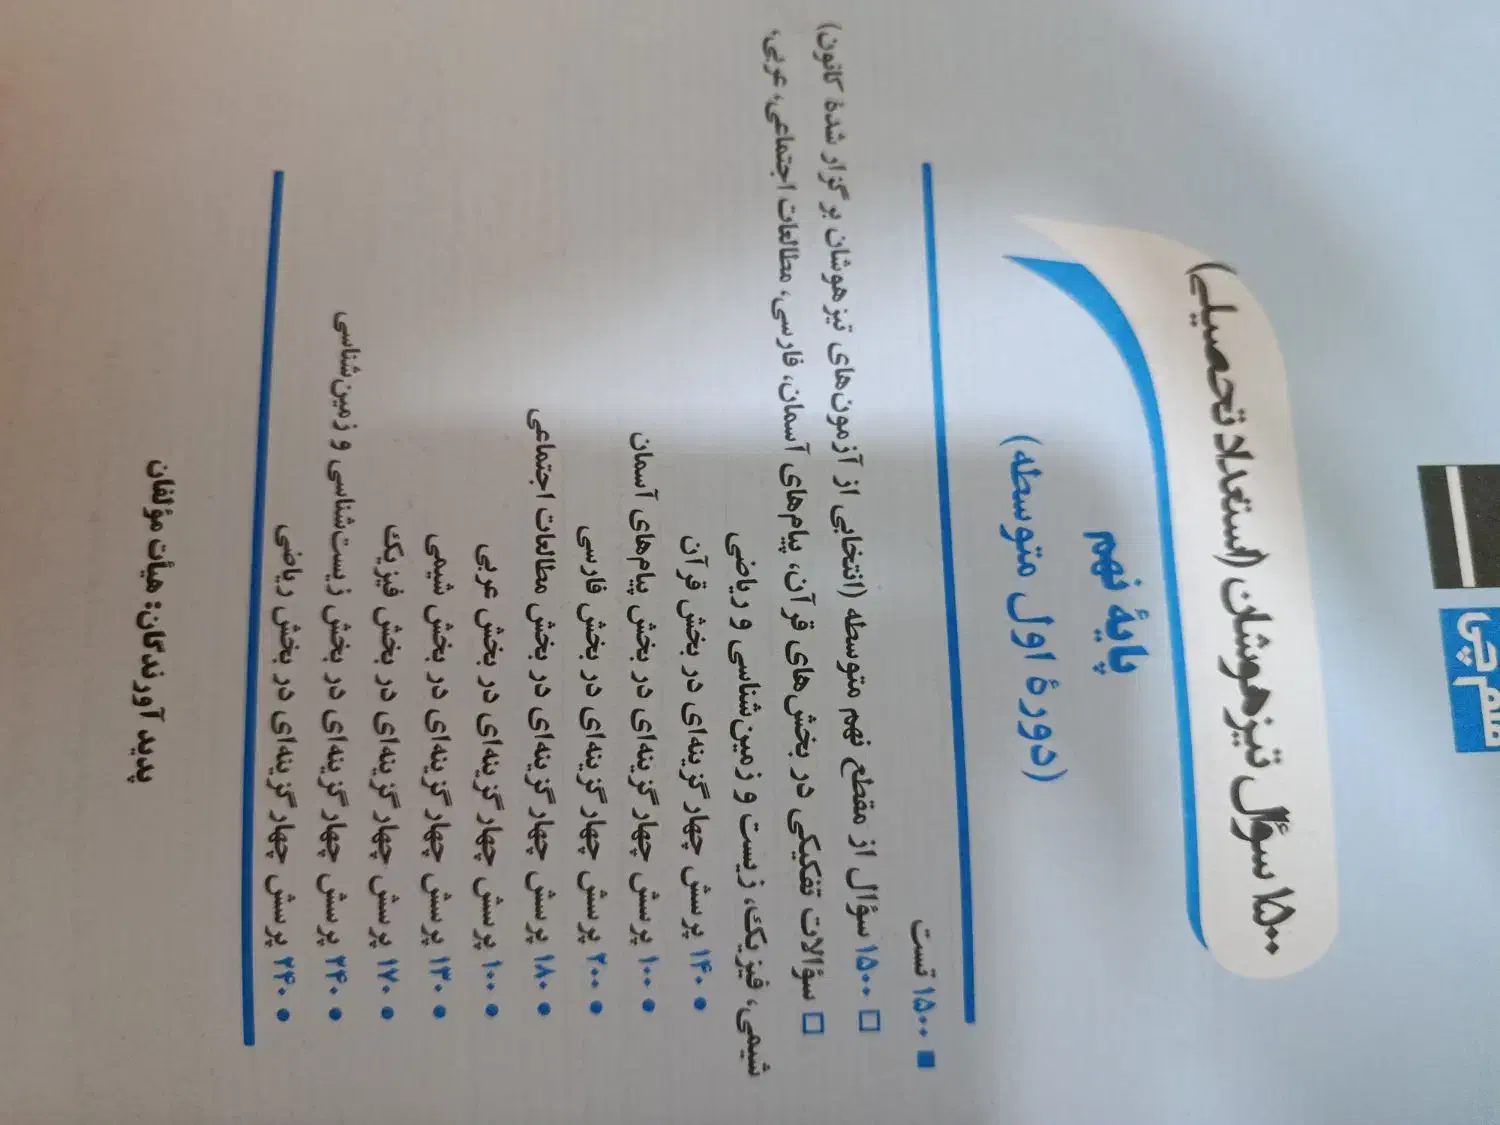 قلم‌چی
۱۵۰۰ سؤال تیزهوشان (استعداد تحصیلی)
پایۀ نهم
(دورۀ اول متوسطه)
■ ۱۵۰۰ تست
□ ۱۵۰۰ سؤال از مقطع نهم متوسطه (انتخابی از آزمون‌های تیزهوشان برگزار شدۀ کانون)
□ سؤالات تفکیکی در بخش‌های قرآن، پیام‌های آسمان، فارسی، مطالعات اجتماعی، عربی،
شیمی، فیزیک، زیست و زمین‌شناسی و ریاضی
● ۱۴۰ پرسش چهارگزینه‌ای در بخش قرآن
● ۱۰۰ پرسش چهارگزینه‌ای در بخش پیام‌های آسمان
● ۲۰۰ پرسش چهارگزینه‌ای در بخش فارسی
● ۱۸۰ پرسش چهارگزینه‌ای در بخش مطالعات اجتماعی
● ۱۰۰ پرسش چهارگزینه‌ای در بخش عربی
● ۱۳۰ پرسش چهارگزینه‌ای در بخش شیمی
● ۱۷۰ پرسش چهارگزینه‌ای در بخش فیزیک
● ۲۴۰ پرسش چهارگزینه‌ای در بخش زیست‌شناسی و زمین‌شناسی
● ۲۴۰ پرسش چهارگزینه‌ای در بخش ریاضی
پدیدآورندگان: هیأت مؤلفان